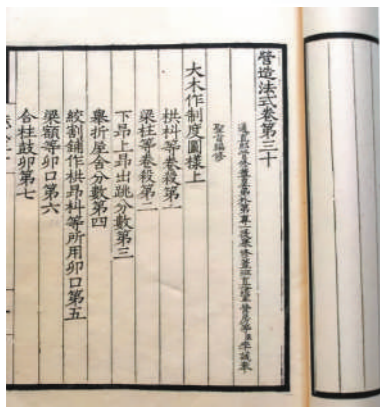 營造法式卷第三十
聖旨編修
大木作制度圖樣上
栱枓等卷殺第一
梁柱等卷殺第二
下昂上昂出跳分數第三
舉折屋舍分數第四
絞割鋪作栱昂枓等所用卯口第五
梁額等卯口第六
合柱鼓卯第七